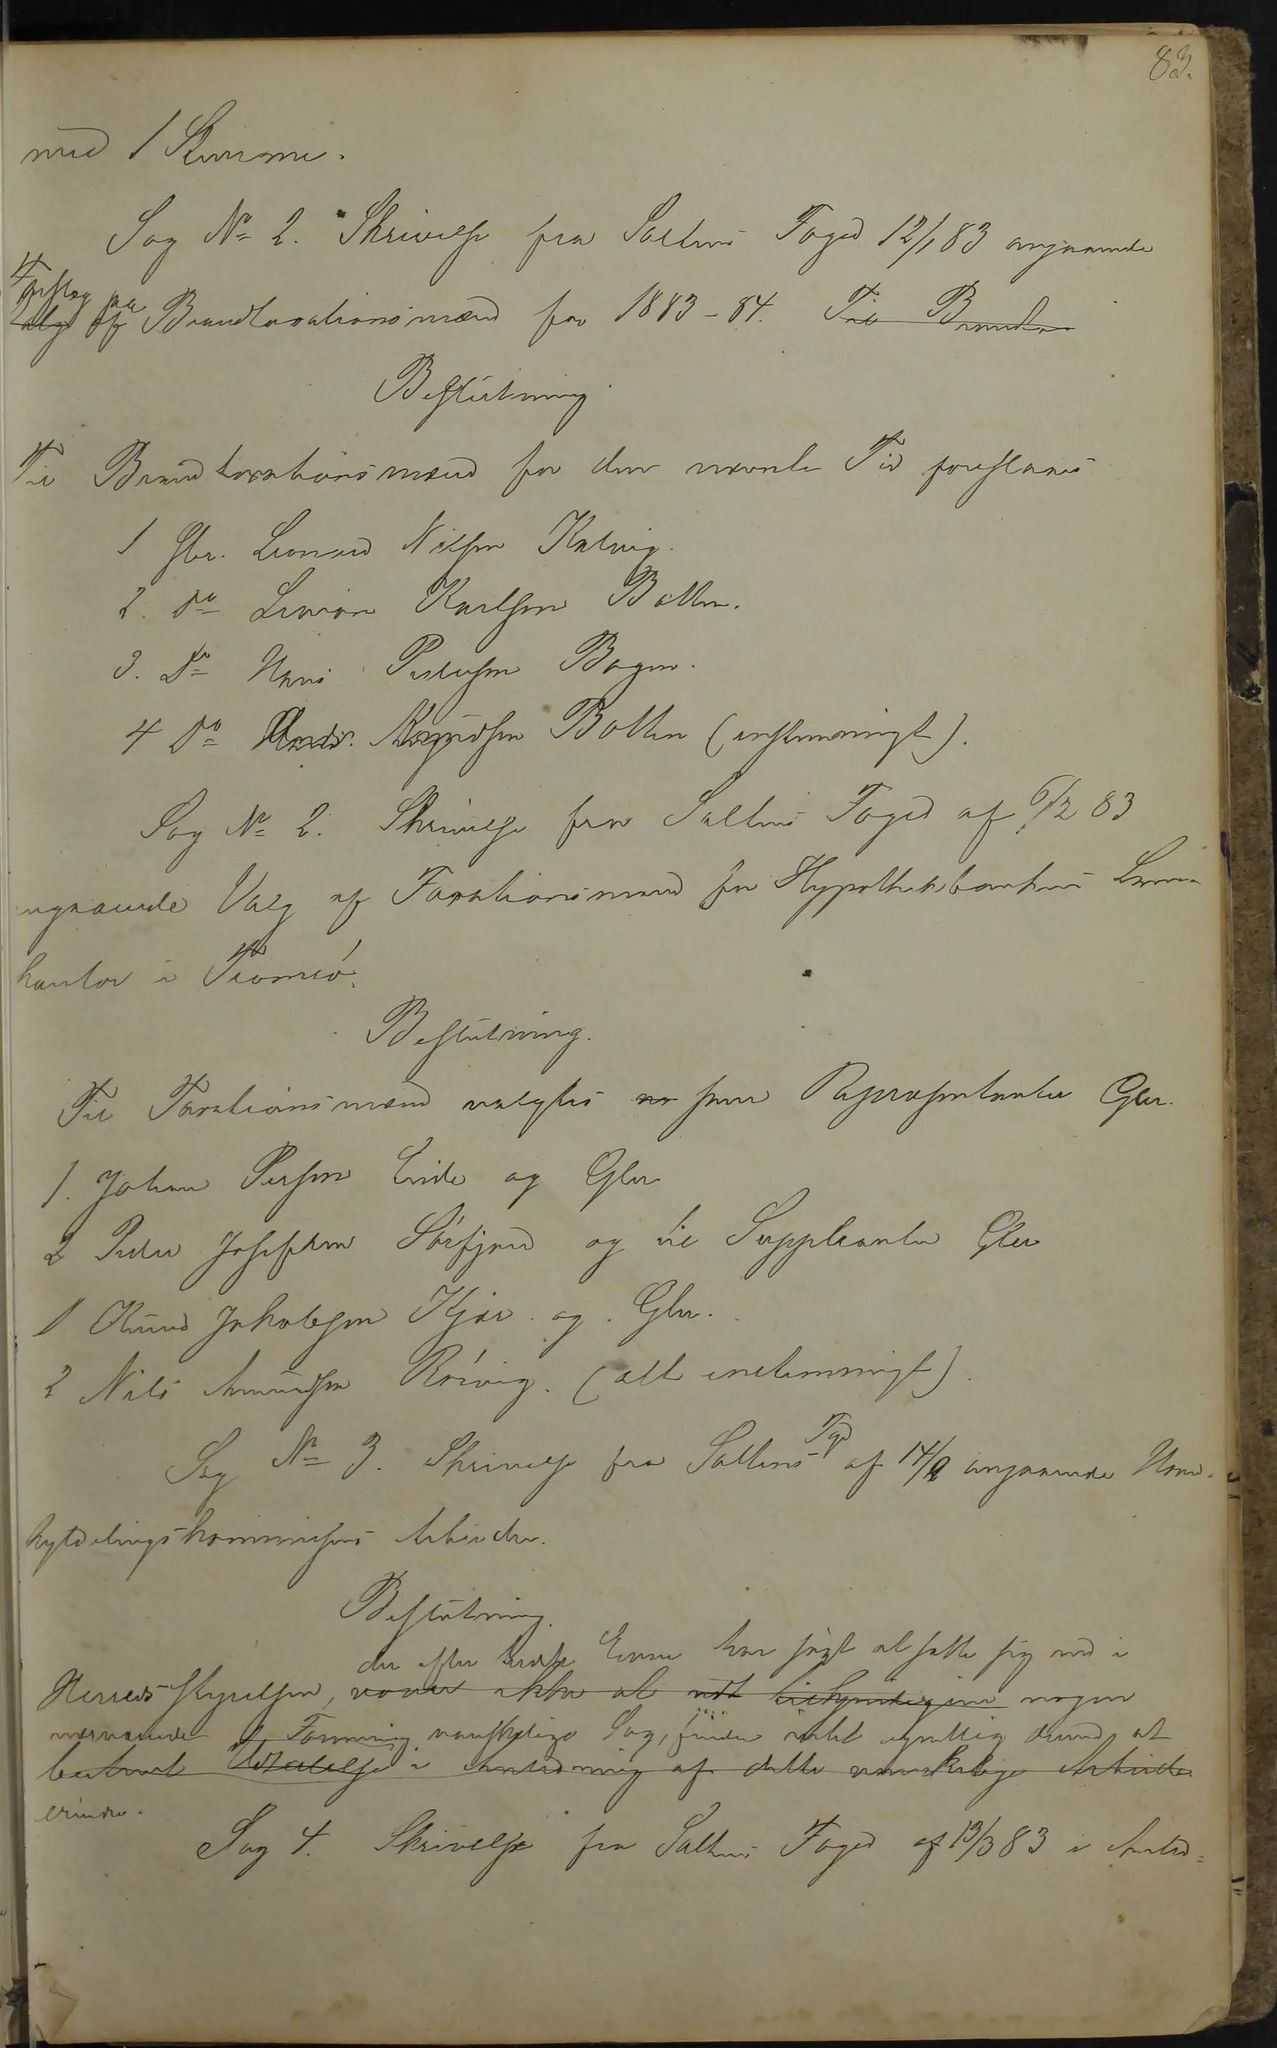 83.
med 1 Stemme.
Sag No 2. Skrivelse fra Saltens Foged 12/1 83 angaaende
Forslag paa
Valg af Brandtaxationsmænd for 1883-84. Til Brandta
Beslutning
Til Brandtaxationsmænd for den nævnte Tid foreslaaes
1 Gbr. Leonard Nilsen Kalvig.
2. Do Karlsen Botten.
3. Do Hans Pedersen Bogen.
4 Do Botten (enstemmigt).
Sag No 2. Skrivelse fra Saltens Foged af 6/2 83
angaaende Valg af Taxationsmænd for Hypothekbankens Laane-
kontor i Tromsö.
Beslutning.
Til Taxationsmænd valgtes som Repræsentanter Gbr.
1. Johan Persen Eide og Gbr
2 Peder Josefsen Sörfjord og til Suppleanter Gbr
1 Knud Jakobsen Kjær og Gbr.
2 Nils Amundsen Rörvig. (alt enstemmigt).
Sag No 3. Skrivelse fra Saltens Fogd af 14/2 angaaende
skyldelingskommissions Arbeider.
Beslutning.
der efter bedste Evne har sögt at sætte sig ind i
Herredsstyrelsen, veed ikke at tilkjendegive nogen
nærværende vanskelige Sag, finder intet at
bestemt Udtalelse i Anledning af dette vanskelige Arbeide
erindre.
Sag 4. Skrivelse fra Saltens Foged af 13/3 83 i Anled=